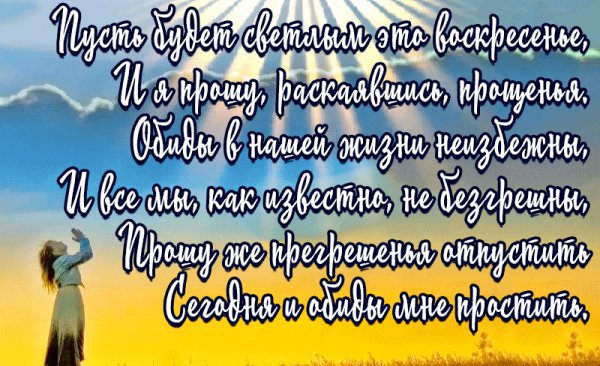 Пусть будет светлым это воскресенье,
И я прошу, раскаявшись, прощенья.
Обиды в нашей жизни неизбежны,
И все мы, как известно, не безгрешны,
Прошу же прегрешенья отпустить
Сегодня и обиды мне простить.